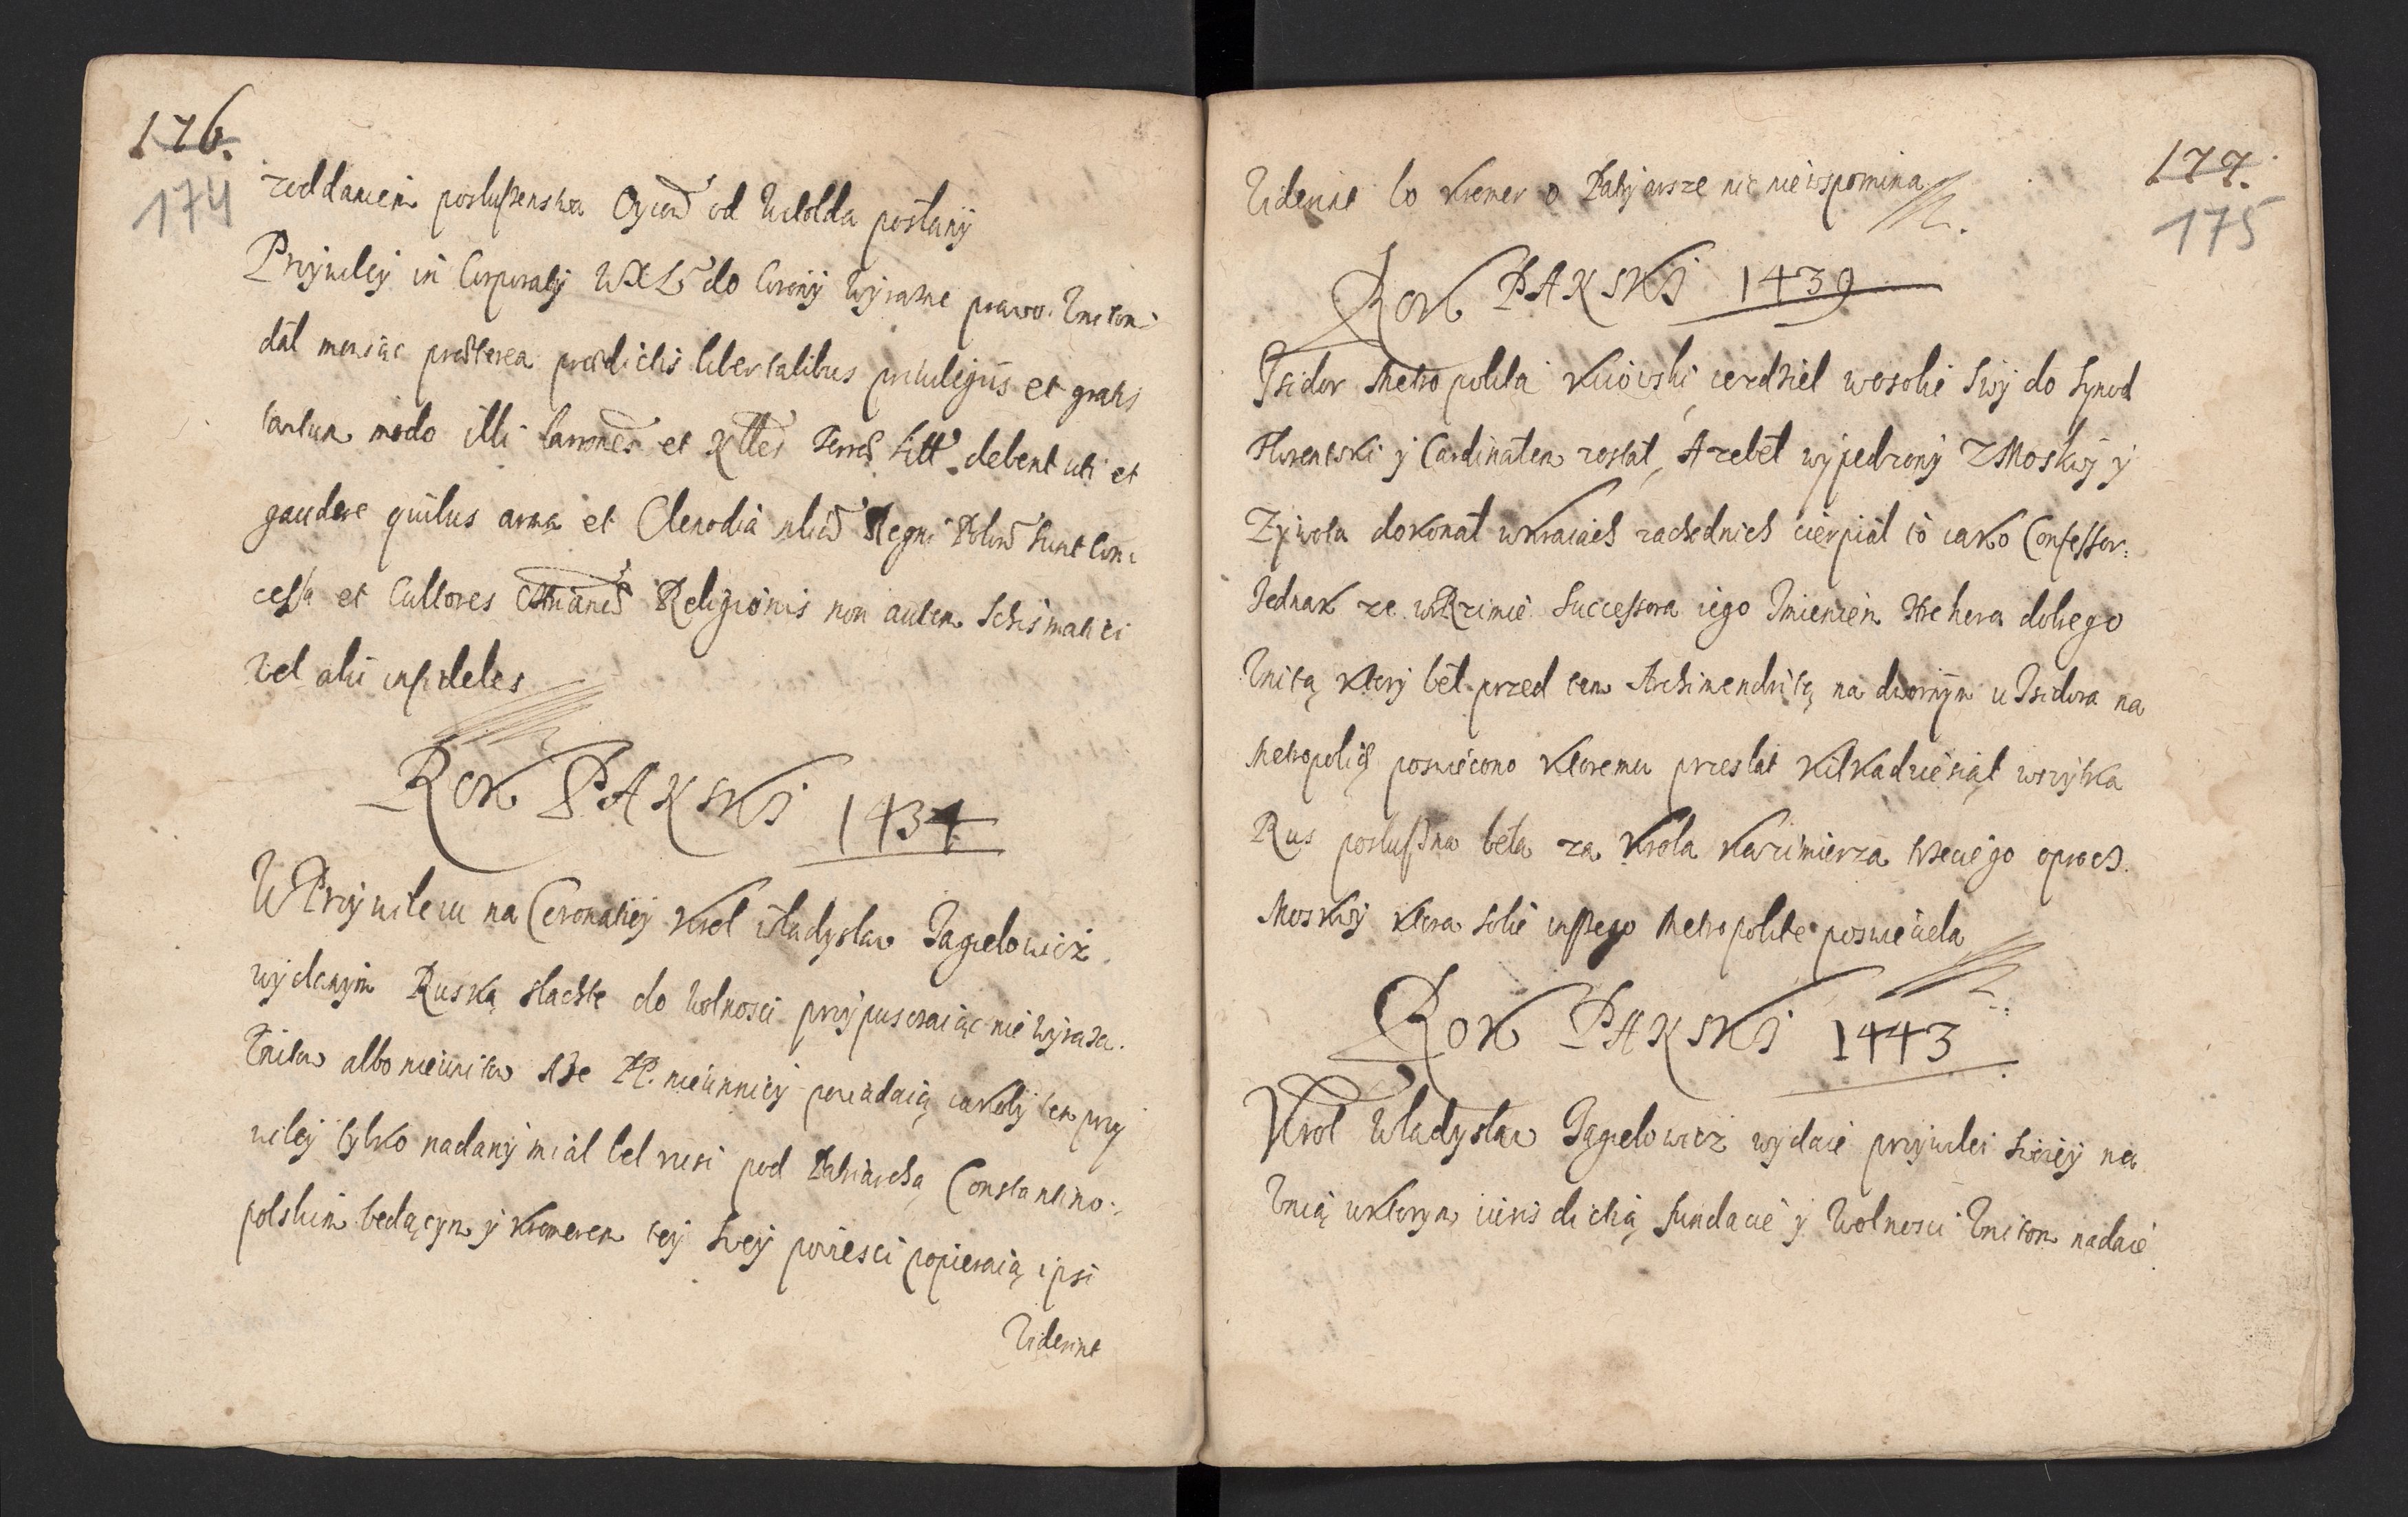 176.
174
zoddaniem posłuszenstwa Oycow od Witolda posłany
Przywiley in Corporatÿ WXL do Corony Wyrazne prawo Uniton:
dał mowiąc præterea prædictis libertatibus priuilegiis et gratis
tantum modo illi barrones et Nlles Terræ Litt. debent uti et
gaudere quibus arma et Clenodia Regni Polon Sunt Con:
cessa et Cultores Christianæ Religionis non autem Schismatici
Vel alii infideles
ROK PANSKI 1434
W Przywileiu na Coronatiey Krol Władysław Jagielowicz
wydanym Ruską slachte do Wolnosci przypuszczaiąc nie Wyraza
Unitow albo nieunitow Aże PP. nieunnicy powiadaią iakoby ten przy
wiley tylko nadany miał bel rusi pod Patriarchą Constantino:
polskim bedącym y Kromerem tey Swey powiesci popieraią ipsi
Viderint
177.
175
Viderint bo Kromer o Patryarsze nic niewspomina
ROK PANSKI 1439
Isidor Metropolita Kiiowski iezdziel wosobie Swy do Synod
Florentski y Cardinałem został, A zebeł wypedzony z Moskwy y
Zywota dokonał wkraiach zachodnich cierpiał to iako Confessor:
Jednak ze wRzimie Successora iego Imieniem Hrehora dobrego
Unitą ktory beł przed tem Archimendritą na dwornym u Isidora na
Metropolią poswiecono ktoremu przes lat kilkadziesiąt wszytka
Rus posłuszna beła za Krola Kazimierza trzeciego oprocz
Moskwy ktora sobie inszego Metropolite poswieciela
ROK PANSKI 1443
Krol Władysław Jagielowicz wydaie przywilei Swiey na
Unią wktorym iurisdictią fundacie y Wolnosci Uniton nadaie